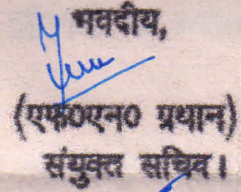 भवदीय,
(एफ0एन0 प्रधान)
संयुक्त सचिव।